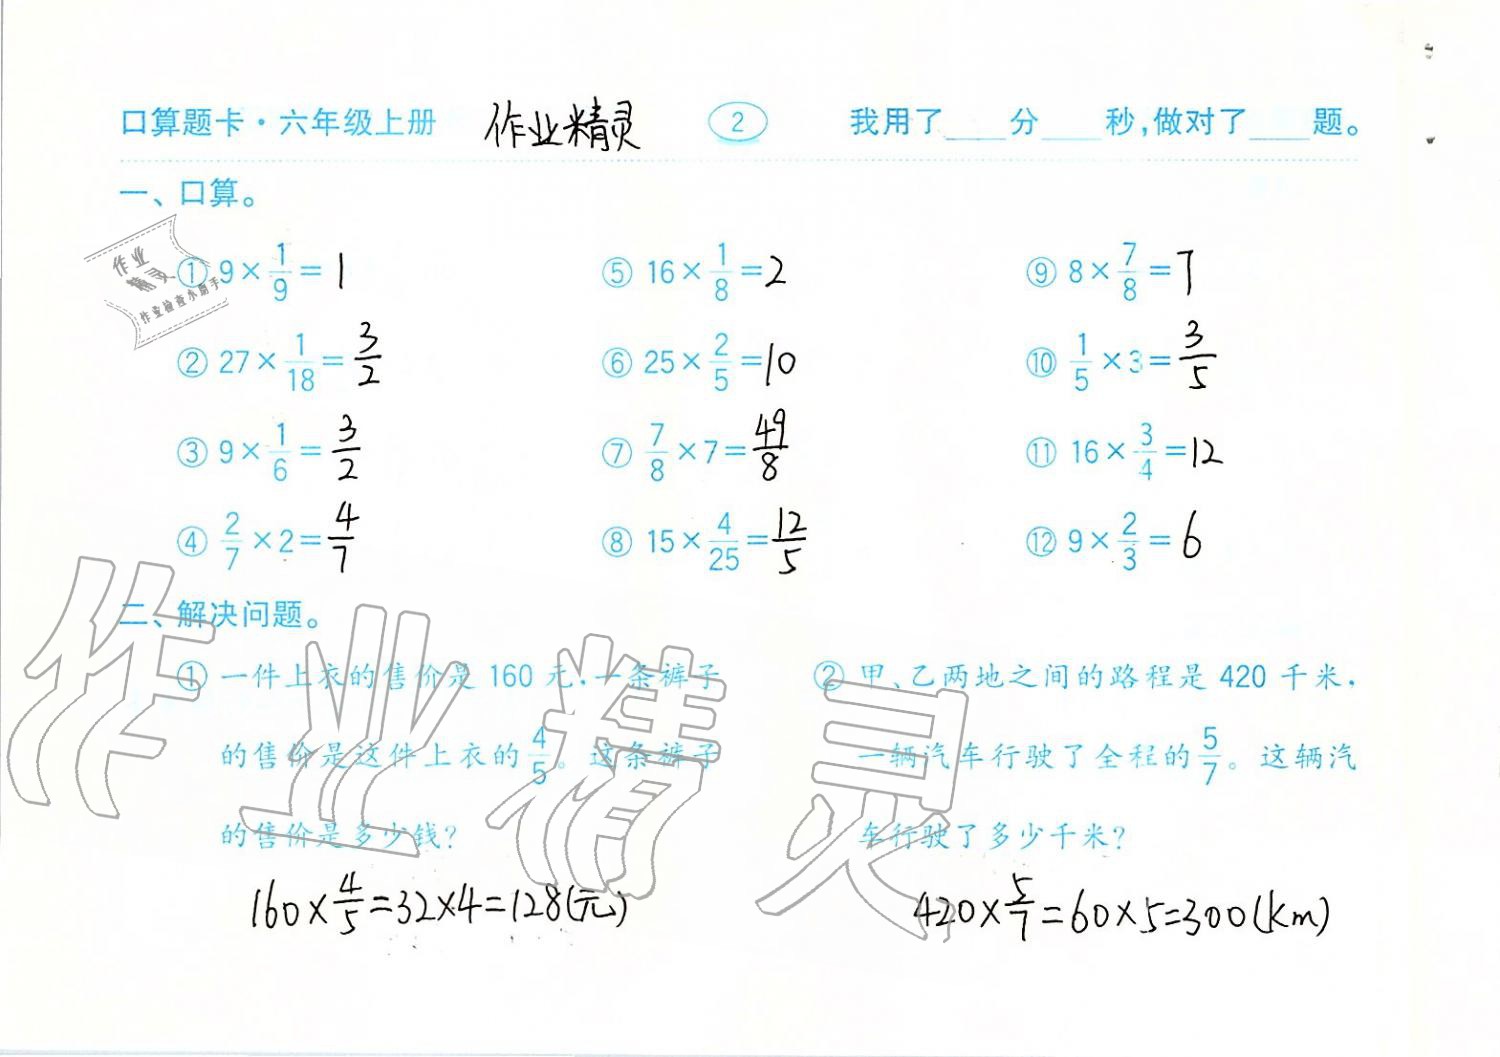 口算题卡·六年级上册 作业精灵 2 我用了____分____秒,做对了____题。
一、口算。
作业
精灵
作业检查小助手
① 9×1/9=1 ⑤ 16×1/8=2 ⑨ 8×7/8=7
② 27×1/18=3/2 ⑥ 25×2/5=10 ⑩ 1/5×3=3/5
③ 9×1/6=3/2 ⑦ 7/8×7=49/8 ⑪ 16×3/4=12
④ 2/7×2=4/7 ⑧ 15×4/25=12/5 ⑫ 9×2/3=6
二、解决问题。
① 一件上衣的售价是 160 元,一条裤子
的售价是这件上衣的4/5。这条裤子
的售价是多少钱?
160×4/5=32×4=128(元)
② 甲、乙两地之间的路程是 420 千米,
一辆汽车行驶了全程的5/7。这辆汽
车行驶了多少千米?
420×5/7=60×5=300(km)
作业精灵